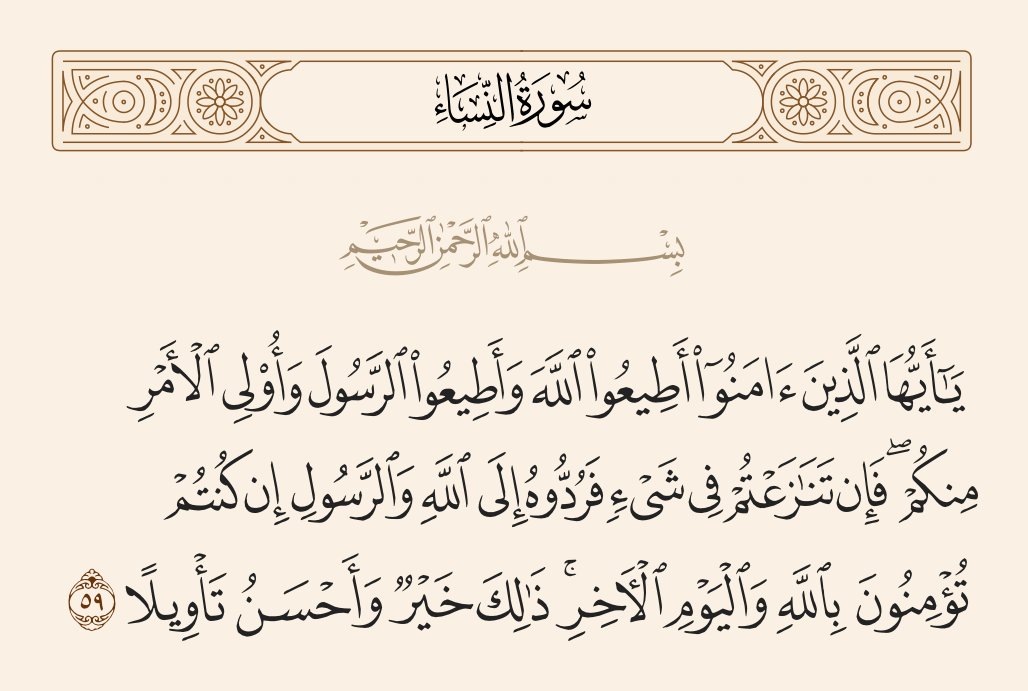 سُورَةُ النِّسَاءِ
بِسْمِ ٱللَّهِ ٱلرَّحْمَٰنِ ٱلرَّحِيمِ
يَٰٓأَيُّهَا ٱلَّذِينَ ءَامَنُوٓا۟ أَطِيعُوا۟ ٱللَّهَ وَأَطِيعُوا۟ ٱلرَّسُولَ وَأُو۟لِى ٱلْأَمْرِ
مِنكُمْ ۖ فَإِن تَنَٰزَعْتُمْ فِى شَىْءٍ فَرُدُّوهُ إِلَى ٱللَّهِ وَٱلرَّسُولِ إِن كُنتُمْ
تُؤْمِنُونَ بِٱللَّهِ وَٱلْيَوْمِ ٱلْءَاخِرِ ۚ ذَٰلِكَ خَيْرٌ وَأَحْسَنُ تَأْوِيلًا ٥٩